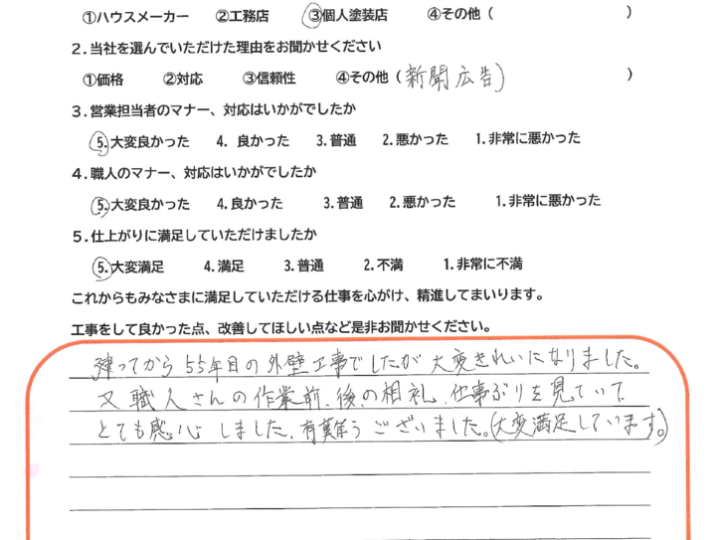 ①ハウスメーカー ②工務店 ③個人塗装店 ④その他（ ）
2.当社を選んでいただけた理由をお聞かせください
①価格 ②対応 ③信頼性 ④その他（新聞広告） ）
3.営業担当者のマナー、対応はいかがでしたか
5.大変良かった 4. 良かった 3.普通 2.悪かった 1.非常に悪かった
4.職人のマナー、対応はいかがでしたか
5.大変良かった 4.良かった 3.普通 2.悪かった 1.非常に悪かった
5.仕上がりに満足していただけましたか
5.大変満足 4.満足 3.普通 2.不満 1.非常に不満
これからもみなさまに満足していただける仕事を心がけ、精進してまいります。
工事をして良かった点、改善してほしい点など是非お聞かせください。
建ってから55年目の外壁工事でしたが大変きれいになりました。
又職人さんの作業前、後の相礼、仕事ぶりを見ていて
とても感心しました、有難うございました。(大変満足しています。)